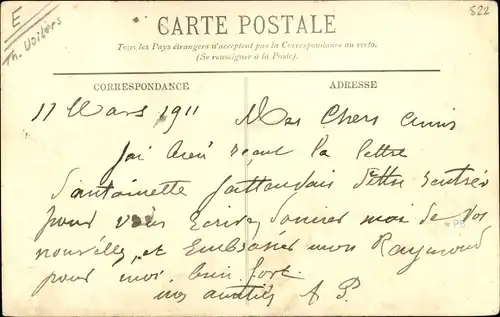 E
Th. Voiters
522
CARTE POSTALE
Tous les Pays étrangers n'acceptent pas la Correspondance au recto.
(Se renseigner à la Poste).
CORRESPONDANCE
ADRESSE
11 Mars 1911 Mes Chers Amis
J'ai bien reçut la lettre
d'antoinette J'attendais d'etre rentrée
pour vous Ecrire, donner moi de vos
nouvelles et Embrasser mon Raymond
pour moi bien fort.
mes amitiés A P.
PB